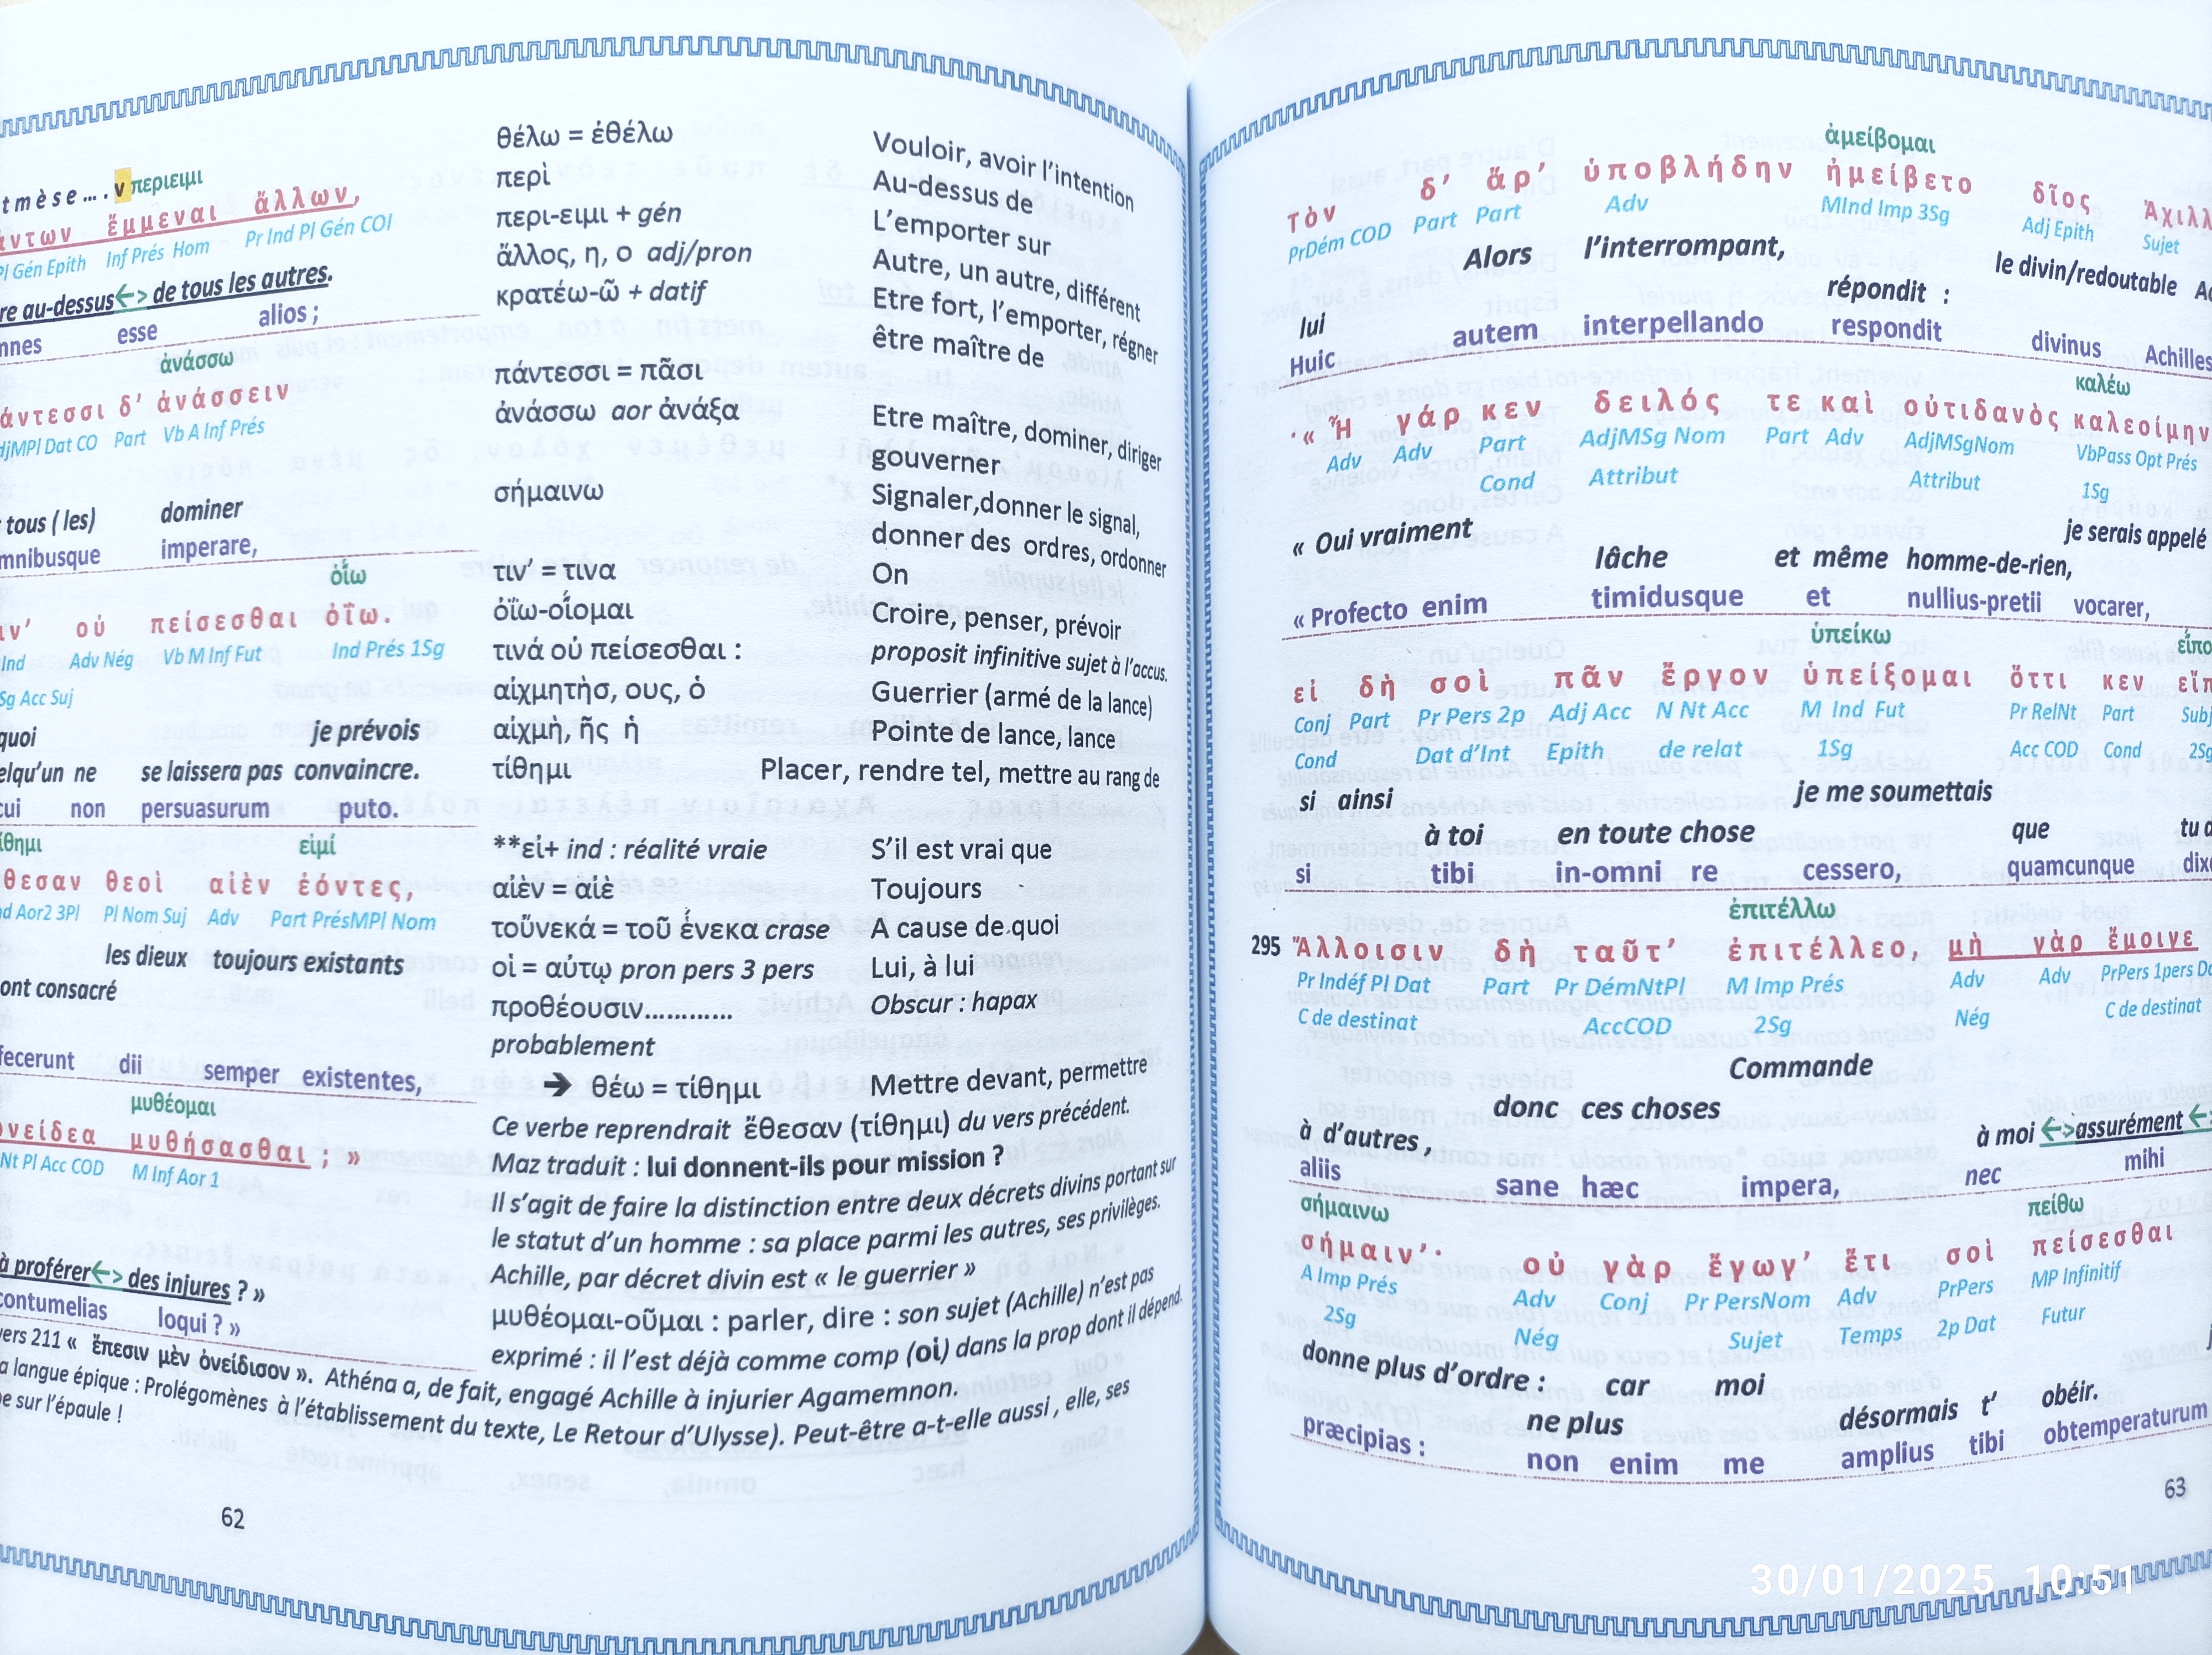 tmèse... . ν περιειμι
ἔμμεναι ἄλλων,
Pl Gén Epith Inf Prés Hom Pr Ind Pl Gén COI
au-dessus<-> de tous les autres.
esse alios ;
ἀνάσσω
δ’ ἀνάσσειν
Dat CO Part Vb A Inf Prés
tous ( les) dominer
imperare,
ὀΐω
οὐ πείσεσθαι ὀΐω.
Ind Adv Nég Vb M Inf Fut Ind Prés 1Sg
Sg Acc Suj
quoi je prévois
ne se laissera pas convaincre.
non persuasurum puto.
εἰμί
θεοὶ αἰὲν ἐόντες,
Aor2 3Pl Pl Nom Suj Adv Part PrésMPl Nom
les dieux toujours existants
ont consacré
fecerunt dii semper existentes,
μυθέομαι
μυθήσασθαι ; »
Nt Pl Acc COD M Inf Aor 1
à proférer<-> des injures ? »
contumelias loqui ? »
vers 211 « ἔπεσιν μὲν ὀνείδισον ». Athéna a, de fait, engagé Achille à injurier Agamemnon.
langue épique : Prolégomènes à l’établissement du texte, Le Retour d’Ulysse). Peut-être a-t-elle aussi , elle, ses
sur l’épaule !
62
θέλω = ἐθέλω Vouloir, avoir l’intention
περὶ Au-dessus de
περι-ειμι + gén L’emporter sur
ἄλλος, η, ο adj/pron Autre, un autre, différent
κρατέω-ῶ + datif Etre fort, l’emporter, régner
être maître de
πάντεσσι = πᾶσι
ἀνάσσω aor ἀνάξα Etre maître, dominer, diriger
gouverner
σήμαινω Signaler,donner le signal,
donner des ordres, ordonner
τιν’ = τινα On
ὀΐω-οἴομαι Croire, penser, prévoir
τινά οὐ πείσεσθαι : proposit infinitive sujet à l’accus.
αἰχμητὴσ, ους, ὁ Guerrier (armé de la lance)
αἰχμὴ, ῆς ἡ Pointe de lance, lance
τίθημι Placer, rendre tel, mettre au rang de
**εἰ+ ind : réalité vraie S’il est vrai que
αἰὲν = αἰὲ Toujours
τοὔνεκά = τοῦ ἕνεκα crase A cause de quoi
οἱ = αὐτῳ pron pers 3 pers Lui, à lui
προθέουσιν............ Obscur : hapax
probablement
➔ θέω = τίθημι Mettre devant, permettre
Ce verbe reprendrait ἔθεσαν (τίθημι) du vers précédent.
Maz traduit : lui donnent-ils pour mission ?
Il s’agit de faire la distinction entre deux décrets divins portant sur
le statut d’un homme : sa place parmi les autres, ses privilèges.
Achille, par décret divin est « le guerrier »
μυθέομαι-οῦμαι : parler, dire : son sujet (Achille) n’est pas
exprimé : il l’est déjà comme comp (οἱ) dans la prop dont il dépend.
ἀμείβομαι
τὸν δ’ ἄρ’ ὑποβλήδην ἠμείβετο δῖος
PrDém COD Part Part Adv MInd Imp 3Sg Adj Epith Sujet
Alors l’interrompant, le divin/redoutable
lui répondit :
Huic autem interpellando respondit divinus Achilles
καλέω
« Ἦ γάρ κεν δειλός τε καὶ οὐτιδανὸς καλεοίμην
Adv Adv Part AdjMSg Nom Part Adv AdjMSgNom VbPass Opt Prés
Cond Attribut Attribut 1Sg
« Oui vraiment je serais appelé
lâche et même homme-de-rien,
« Profecto enim timidusque et nullius-pretii vocarer,
ὑπείκω
εἰ δὴ σοὶ πᾶν ἔργον ὑπείξομαι ὅττι κεν
Conj Part Pr Pers 2p Adj Acc N Nt Acc M Ind Fut Pr RelNt Part Subj
Cond Dat d’Int Epith de relat 1Sg Acc COD Cond 2Sg
si ainsi je me soumettais
à toi en toute chose que
si tibi in-omni re cessero, quamcunque
ἐπιτέλλω
295 Ἄλλοισιν δὴ ταῦτ’ ἐπιτέλλεο, μὴ γὰρ ἔμοιγε
Pr Indéf Pl Dat Part Pr DémNtPl M Imp Prés Adv Adv PrPers 1pers
C de destinat AccCOD 2Sg Nég C de destinat
Commande
donc ces choses
à d’autres , à moi <->assurément <-
aliis sane hæc impera, nec mihi
σήμαινω πείθω
σήμαιν’· οὐ γὰρ ἔγωγ’ ἔτι σοὶ πείσεσθαι
A Imp Prés Adv Conj Pr PersNom Adv PrPers MP Infinitif
2Sg Nég Sujet Temps 2p Dat Futur
donne plus d’ordre : car moi
ne plus désormais t’ obéir.
præcipias : non enim me amplius tibi obtemperaturum
63
30/01/2025 10:51